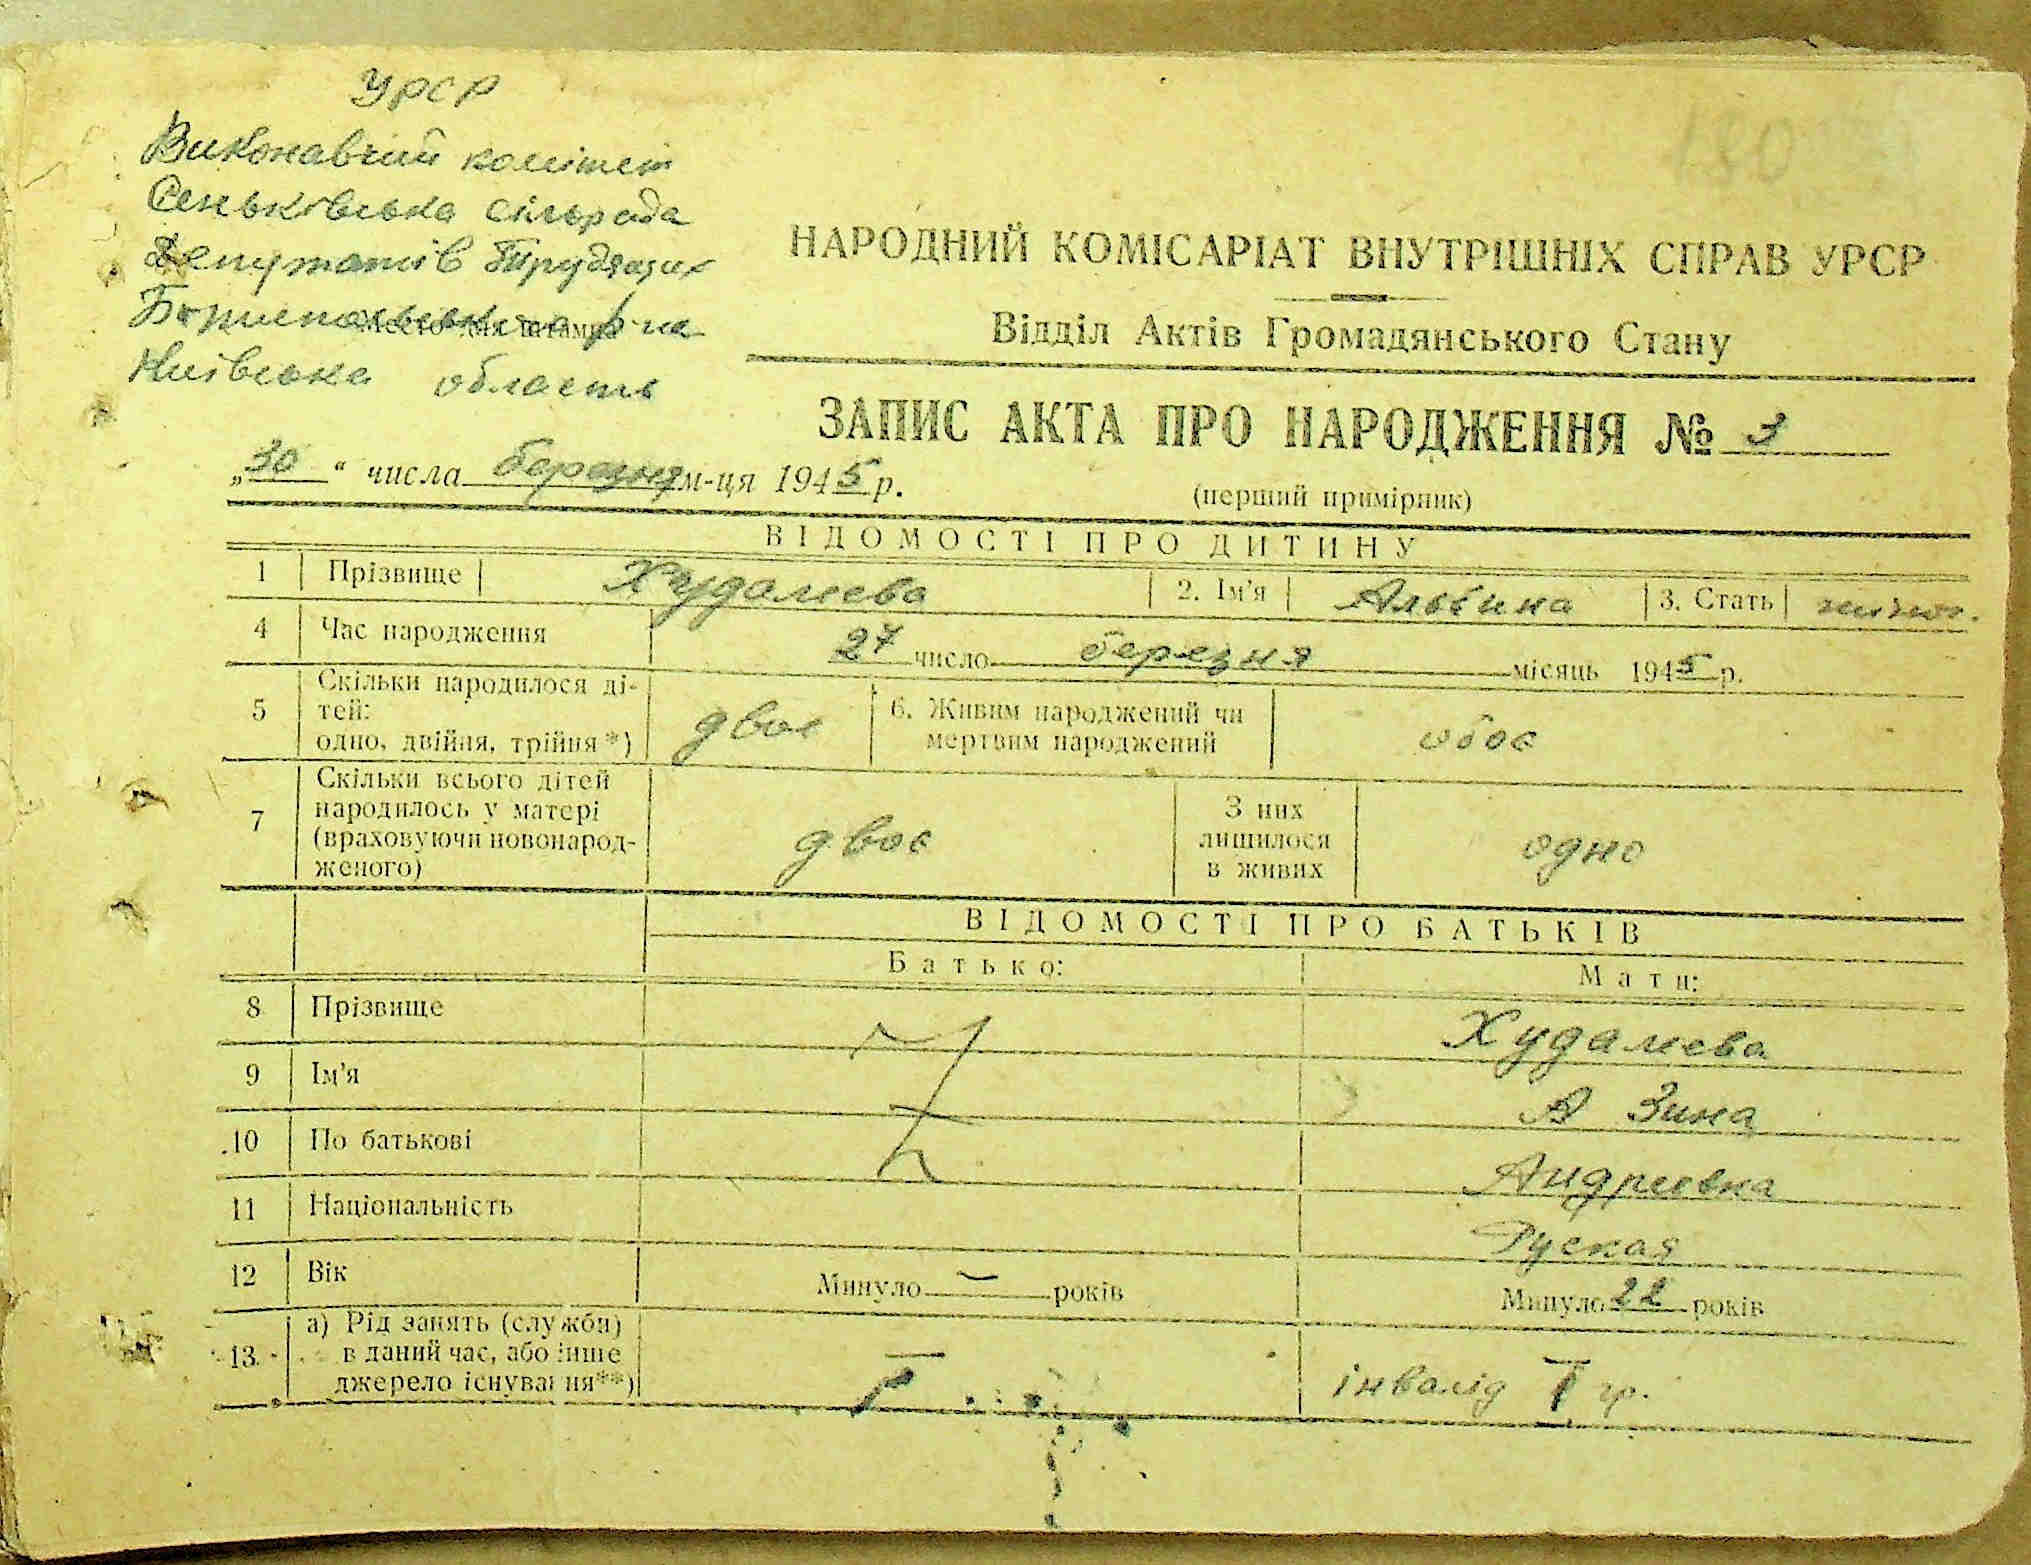 УРСР
Виконавчий комітет
Сеньківська сільрада
Депутатів Трудящих
Київська область
180
НАРОДНИЙ КОМІСАРІАТ ВНУТРІШНІХ СПРАВ УРСР
Відділ Актів Громадянського Стану
ЗАПИС АКТА ПРО НАРОДЖЕННЯ № 3
„30“ числа березня м-ця 1945 р.
(перший примірник)
ВІДОМОСТІ ПРО ДИТИНУ
1 Прізвище Худалеева 2. Ім'я Альбина 3. Стать жіноч.
4 Час народження 27 число березня місяць 1945 р.
5 Скільки народилося ді-
тей:
одно, двійня, трійня*) двоє
6. Живим народжений чи
мертвим народжений обоє
7 Скільки всього дітей
народилось у матері
(враховуючи новонарод-
женого) двоє
З них
лишилося
в живих одно
ВІДОМОСТІ ПРО БАТЬКІВ
Батько: Мати:
8 Прізвище Худалеева
9 Ім'я А Зина
10 По батькові Андреевна
11 Національність Руская
12 Вік Минуло — років Минуло 22 років
13 а) Рід занять (служби)
в даний час, або інше
джерело існування**) — інвалід I гр.